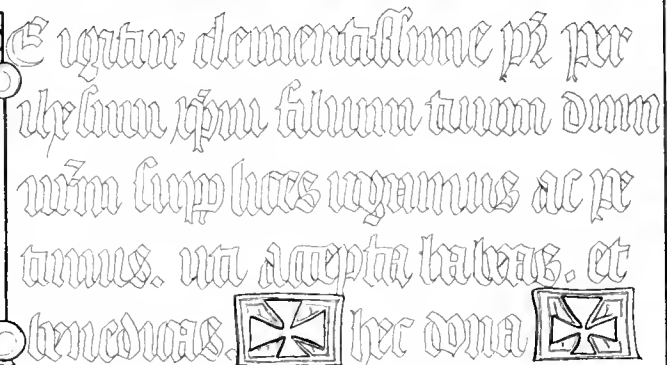 E igitur clementissime pr̄ per
ihesum xp̄m filium tuum dnm
nr̄m supplices rogamus ac pe
timus. uti accepta habeas. et
benedicas. ✠ hec dona ✠